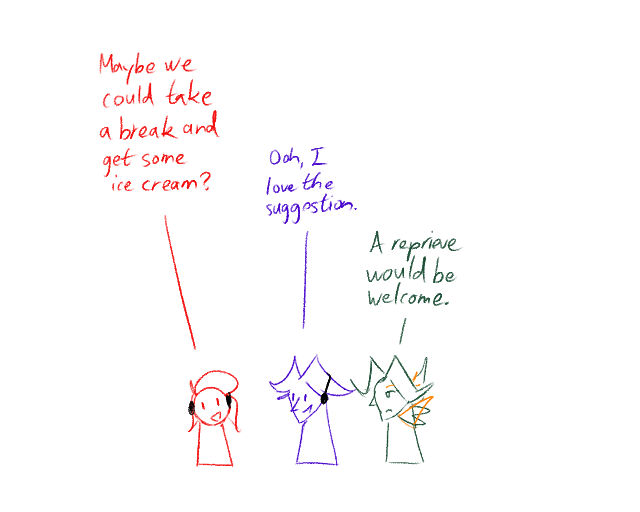 Maybe we
could take
a break and
get some
ice cream?
Ooh, I
love the
suggestion.
A reprieve
would be
welcome.